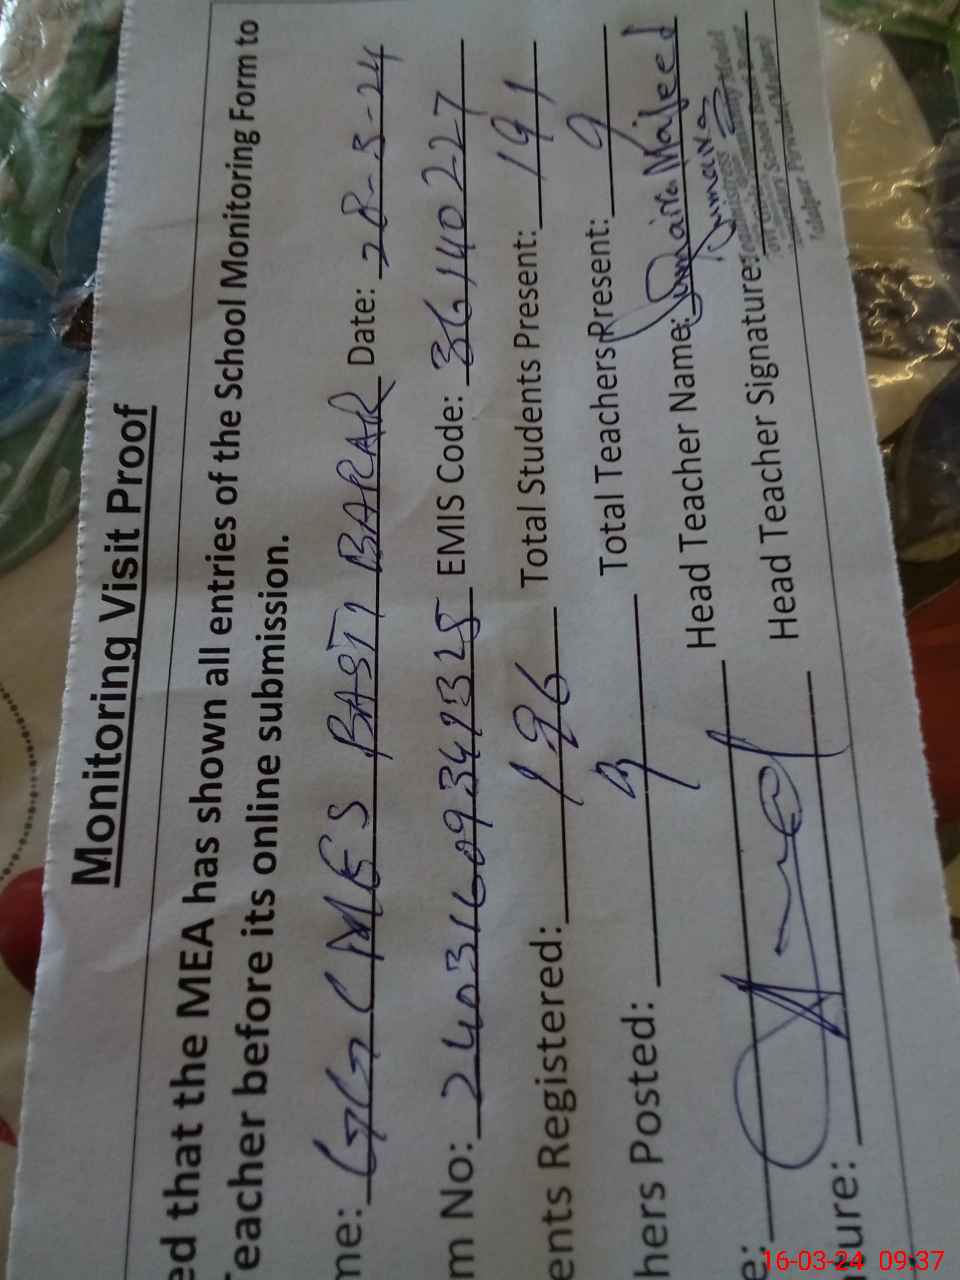 Monitoring Visit Proof
ed that the MEA has shown all entries of the School Monitoring Form to
Teacher before its online submission.
me: GG CMES BASTI BARAR Date: 28-3-24
m No: 24031609349325 EMIS Code: 36140227
ents Registered: 196 Total Students Present: 191
hers Posted: 9 Total Teachers Present: 9
e: Head Teacher Name: Sumaira Majeed
ure: Head Teacher Signature: Sumaira
16-03-24 09:37